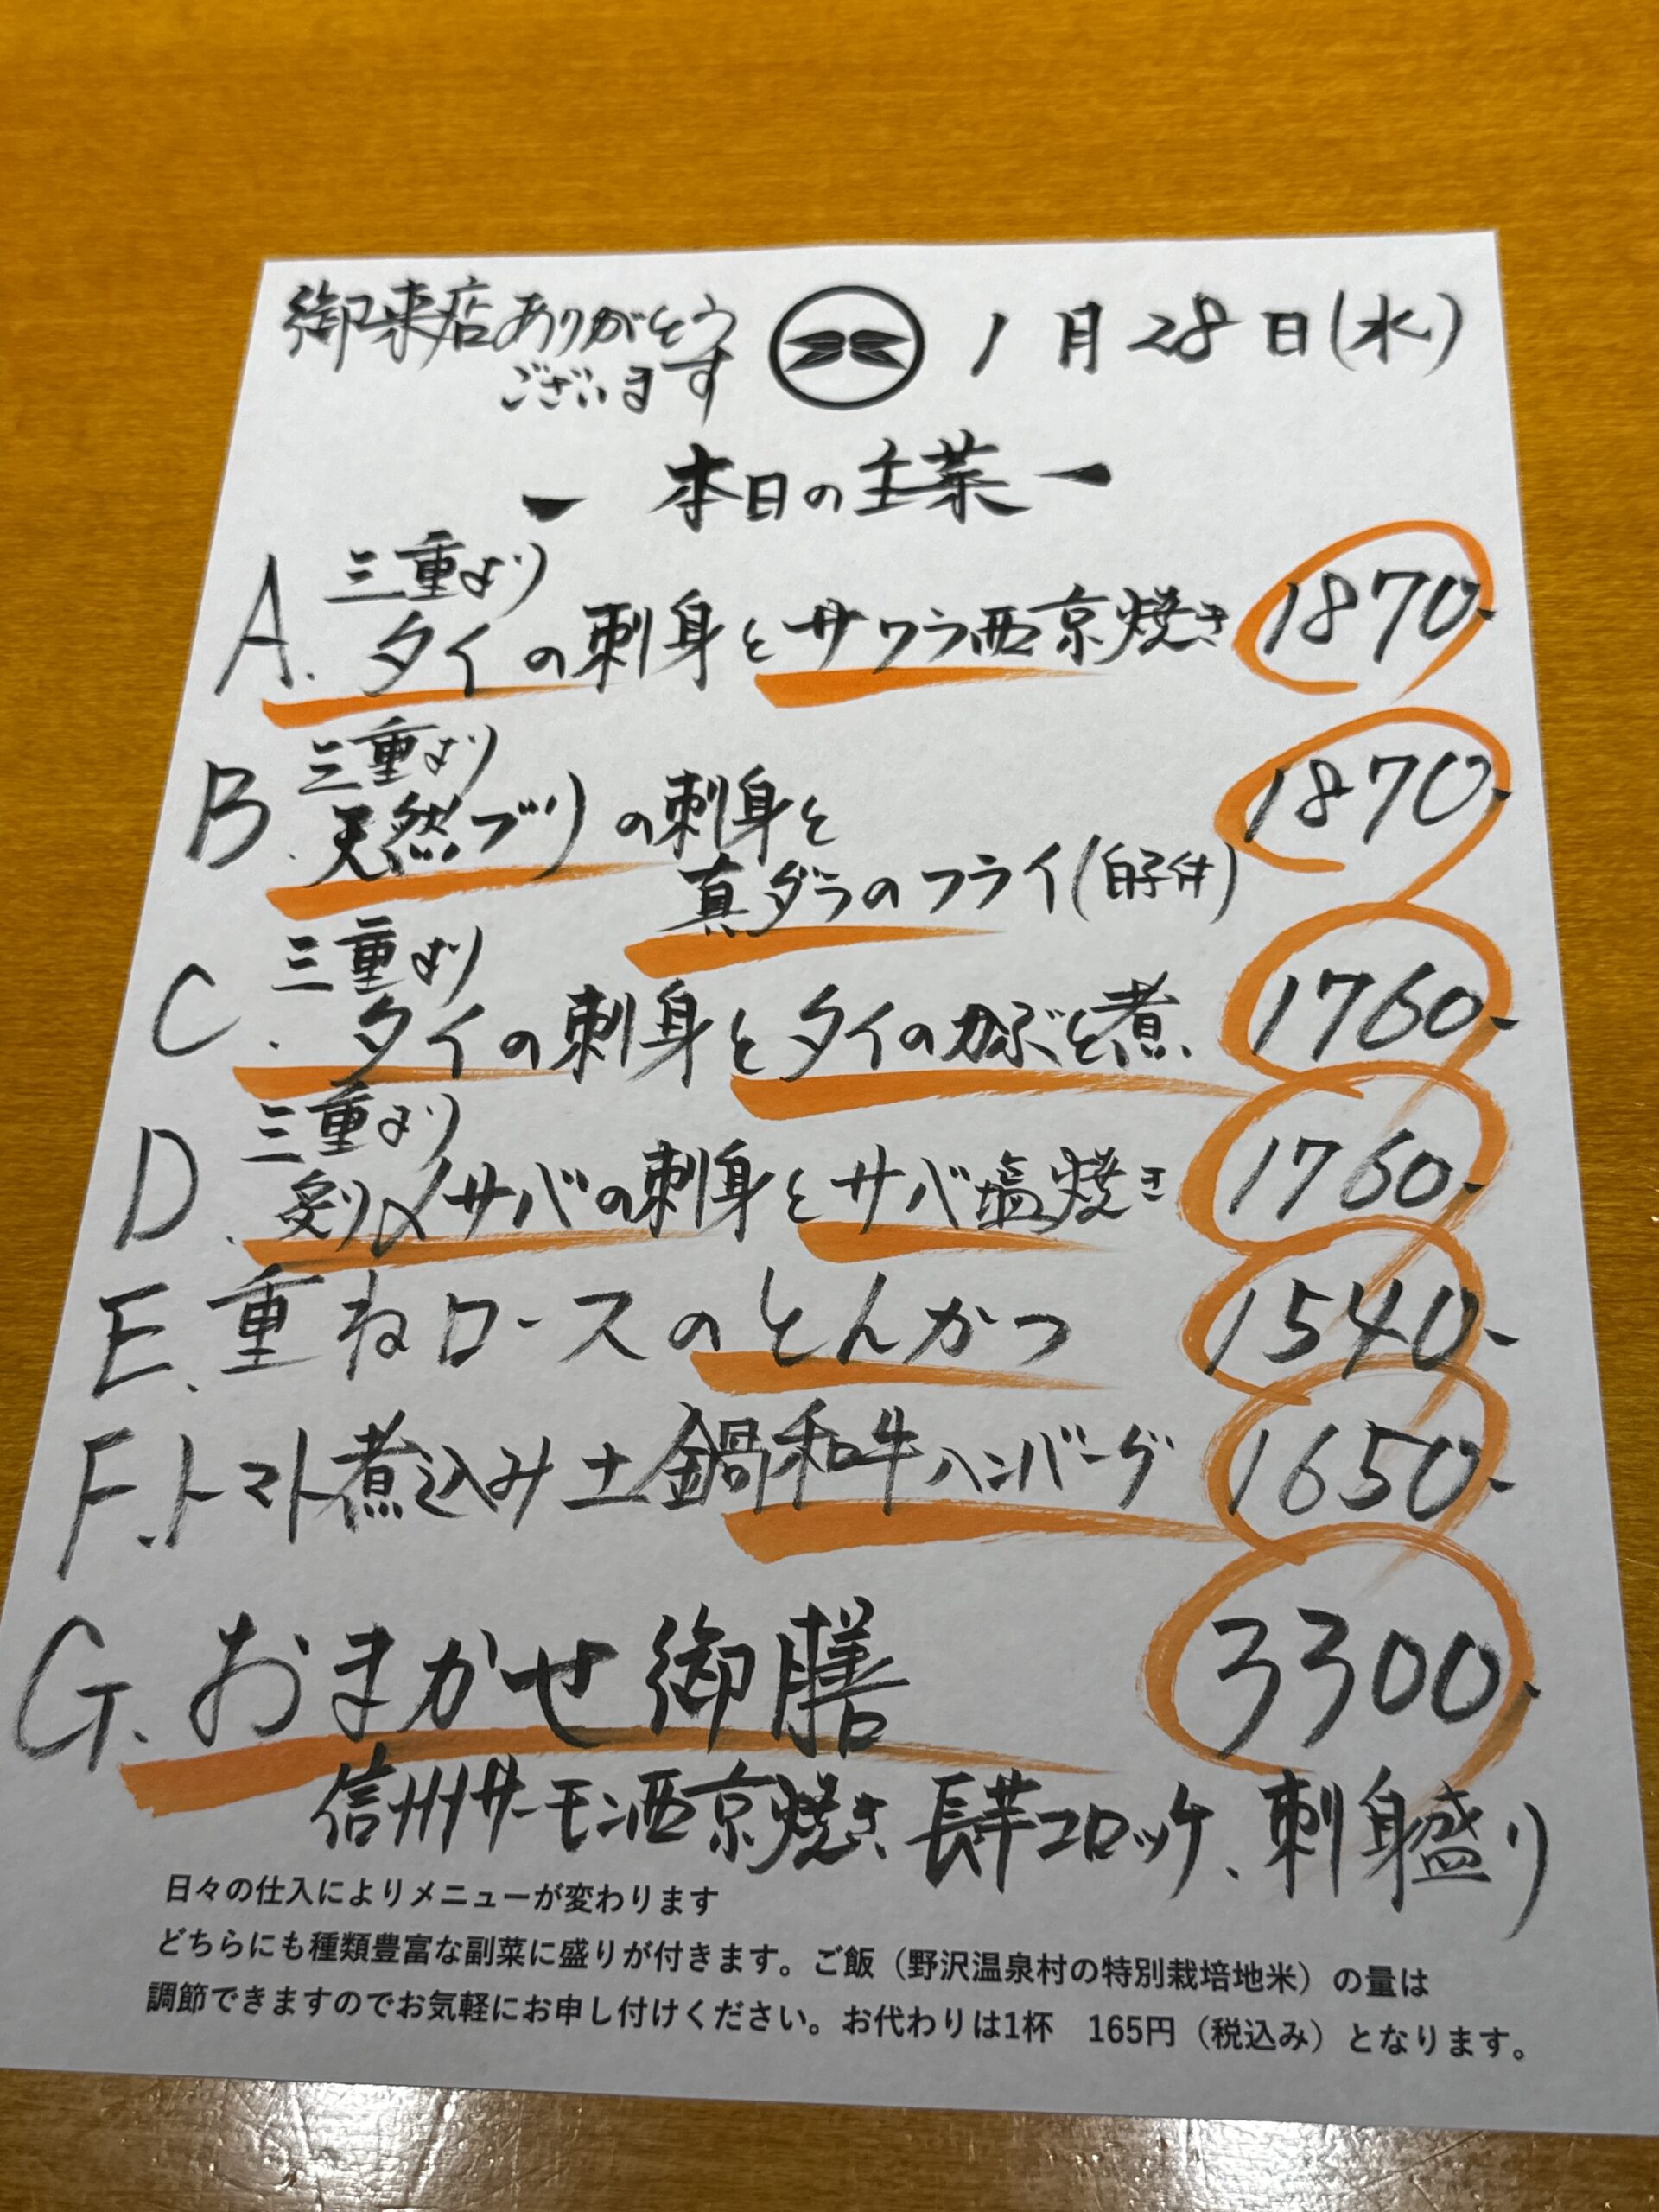 御来店ありがとう
ございます
1月28日(水)
ー 本日の主菜 ー
三重より
A. タイの刺身とサワラ西京焼き 1870-
三重より
B. 天然ブリの刺身と 1870-
真ダラのフライ(白子付)
三重より
C. タイの刺身とタイのかぶと煮 1760-
三重より
D. 炙り〆サバの刺身とサバ塩焼き 1760-
E. 重ねロースのとんかつ 1540-
F. トマト煮込み土鍋和牛ハンバーグ 1650-
G. おまかせ御膳 3300-
信州サーモン西京焼き、長芋コロッケ、刺身盛り
日々の仕入によりメニューが変わります
どちらにも種類豊富な副菜に盛りが付きます。ご飯（野沢温泉村の特別栽培地米）の量は
調節できますのでお気軽にお申し付けください。お代わりは1杯　165円（税込み）となります。